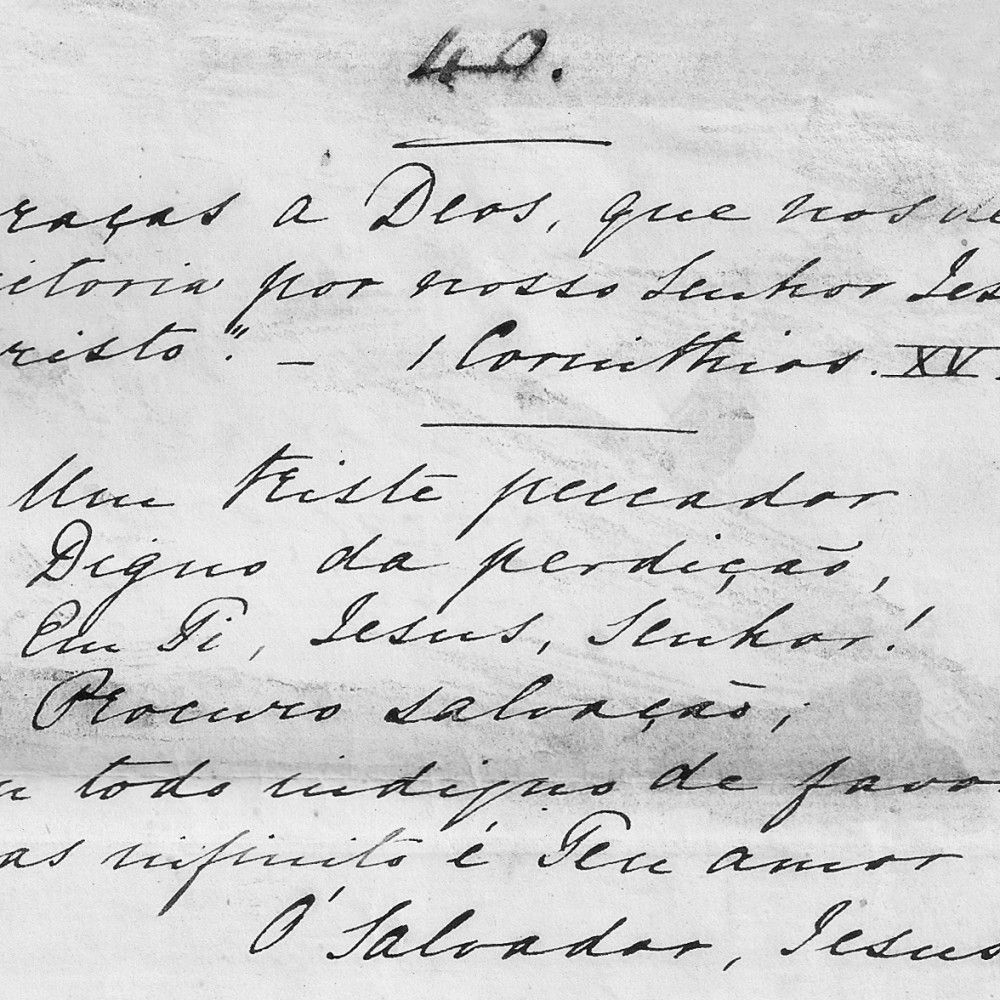 40.
raças a Deos, que nos de
ictoria por nosso Senhor Jes
risto". – 1 Corinthios. XV.
Um triste peccador
Digno da perdição,
Em Ti, Jesus, Senhor!
Procuro salvação;
u todo indigno de favo
as infinito é Teu amor
Ó Salvador, Jesus